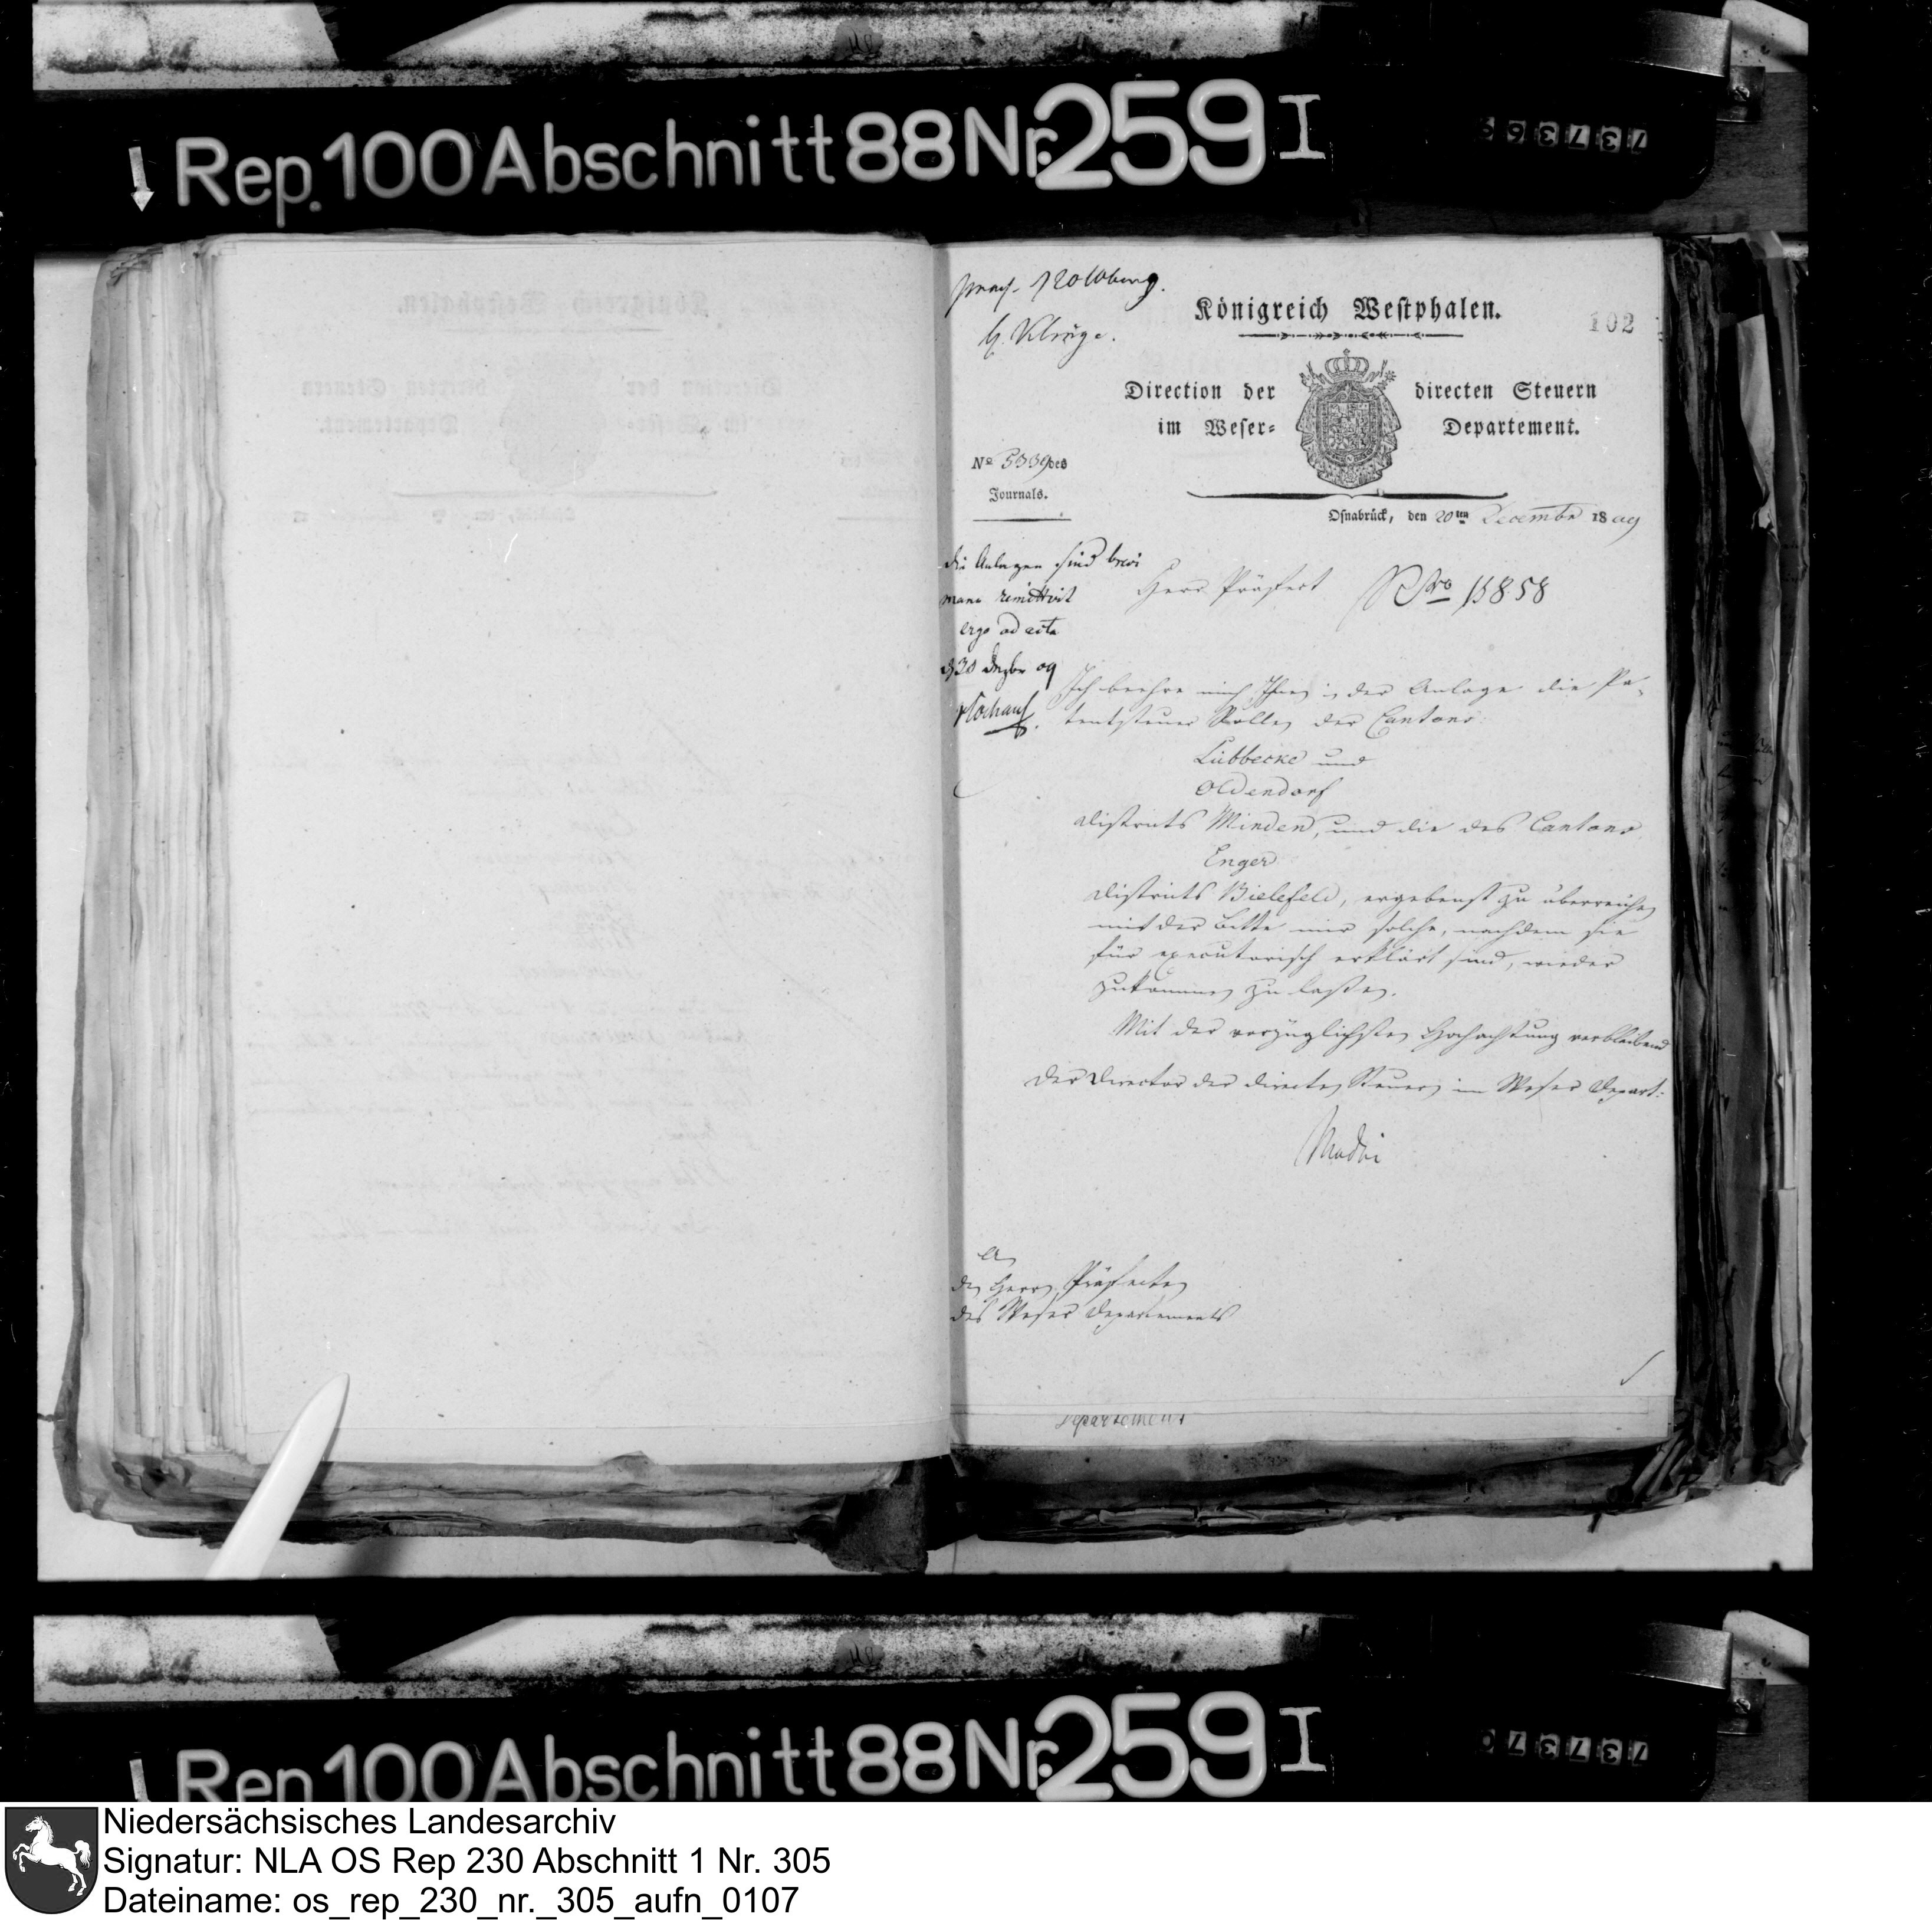 Rep. 100 Abschnitt 88 Nr. 259 I
737369
H. Kluge.
Königreich Westphalen.
102
Direction der directen Steuern
im Weser- Departement.
No 5339 des
Journals.
Osnabrück, den 20ten December 1809
die Anlagen sind brevi
manu remittirt
ergo ad acta
d 30 Dezbr 09
Herr Präfect
Nro 13858
Ich beehre mich Ihnen in der Anlage die Pa-
tentsteuer Rollen der Cantons:
Lübbecke und
Oldendorf
Districts Minden, und die des Cantons
Enger
Districts Bielefeld, ergebenst zu überreichen
mit der Bitte mir solche, nachdem sie
für executorisch erklärt sind, wieder
zukommen zu laßen.
Mit der vorzüglichsten Hochachtung verbleibend
Der Director der directen Steuern im Weser Depart:
An
den Herrn Präfecten
des Weser Departements
Departement
Rep 100 Abschnitt 88 Nr. 259 I
737370
Niedersächsisches Landesarchiv
Signatur: NLA OS Rep 230 Abschnitt 1 Nr. 305
Dateiname: os_rep_230_nr._305_aufn_0107